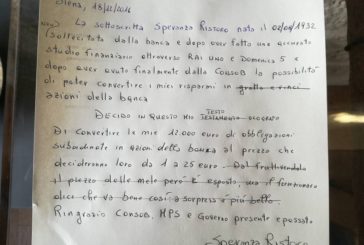 Siena, 18/11/2016
La sottoscritta Speranza Ristoro nata il 02/01/1932
sollecitata dalla banca e dopo aver fatto una accurato
studio finanziario attraverso RAI uno e Domenica 5 e
dopo aver avuto finalmente dalla CONSOB la possibilità
di poter convertire i miei risparmi in gratta e vinci
azioni della banca
TESTO
DECIDO IN QUESTO MIO TESTAMENTO OLOGRAFO
Di convertire le mie 12.000 euro di obbligazioni
subordinate in azioni della banca al prezzo che
decideranno loro da 1 a 25 euro. Dal fruttivendolo
il prezzo delle mele però è esposto, ma il funzionario
dice che va bene così: a sorpresa è più bello.
Ringrazio CONSOB, MPS e Governo presente e passato.
Speranza Ristoro